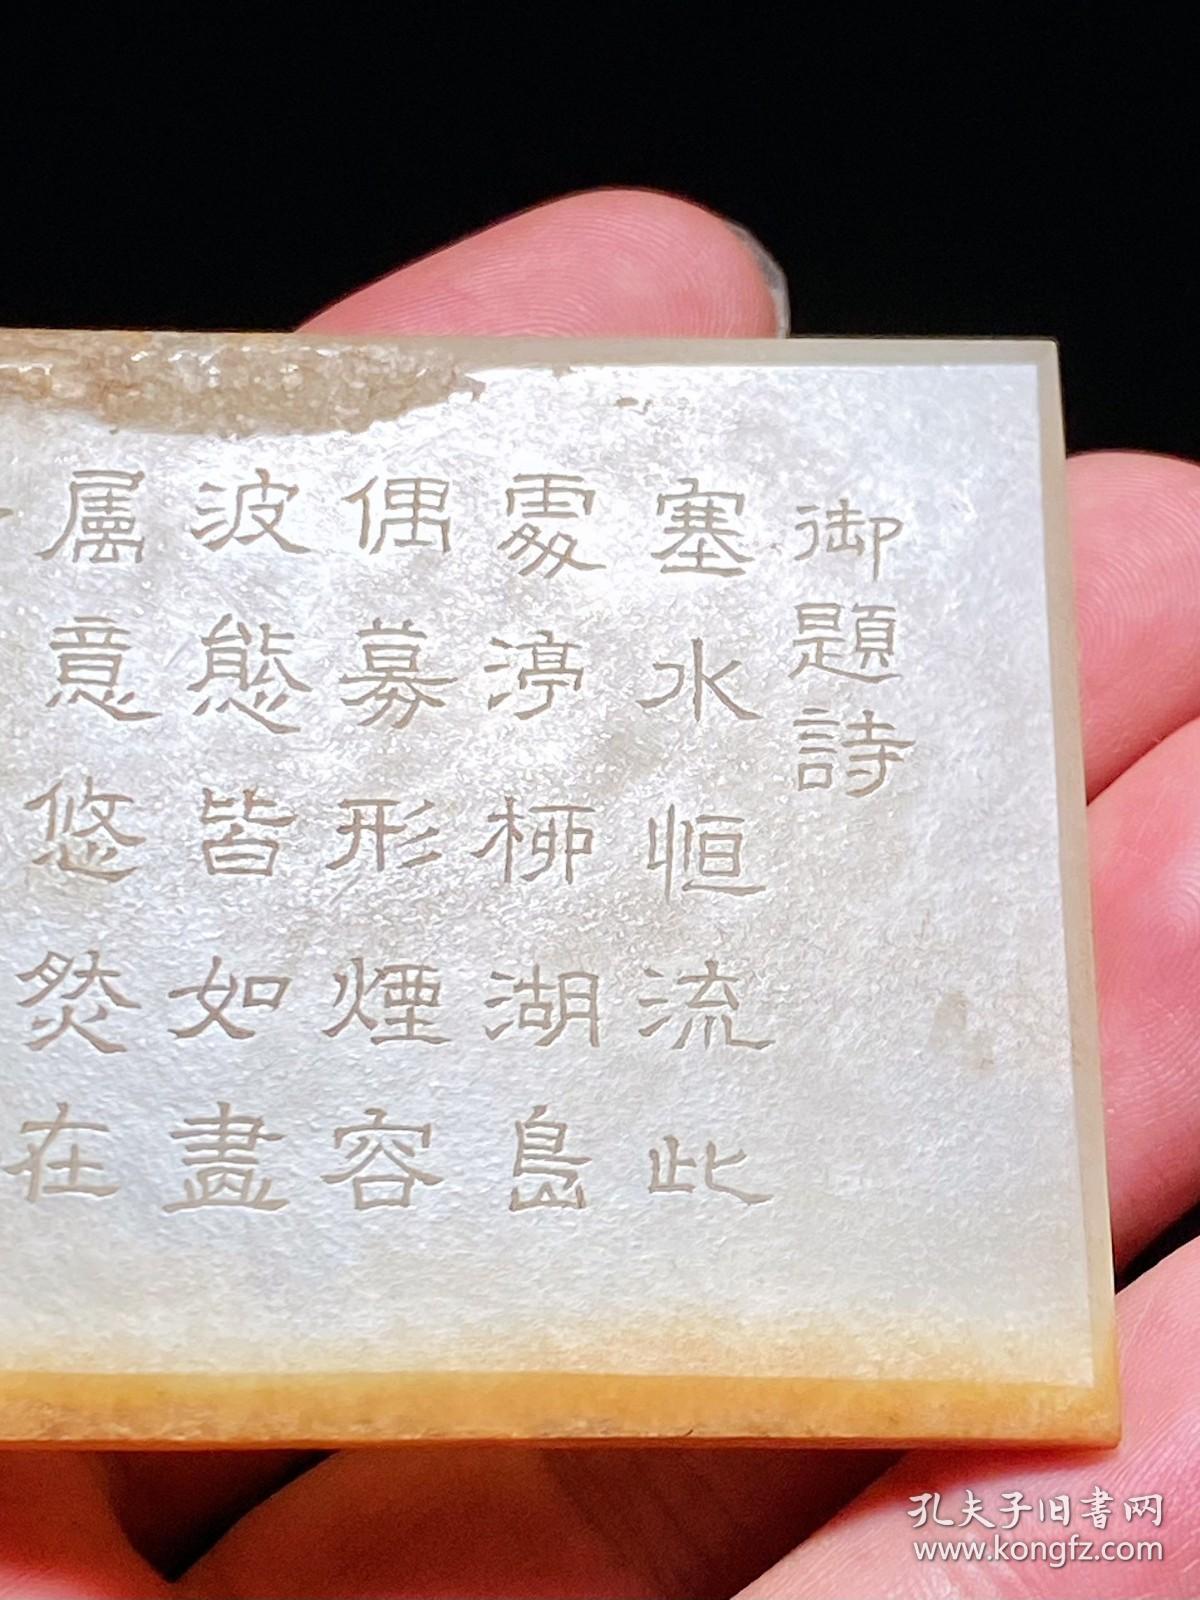 御題詩
塞水恒流此
處渟柳湖島
偶摹形煙容
波態皆如畫
屬意悠然在
孔夫子旧书网
www.kongfz.com